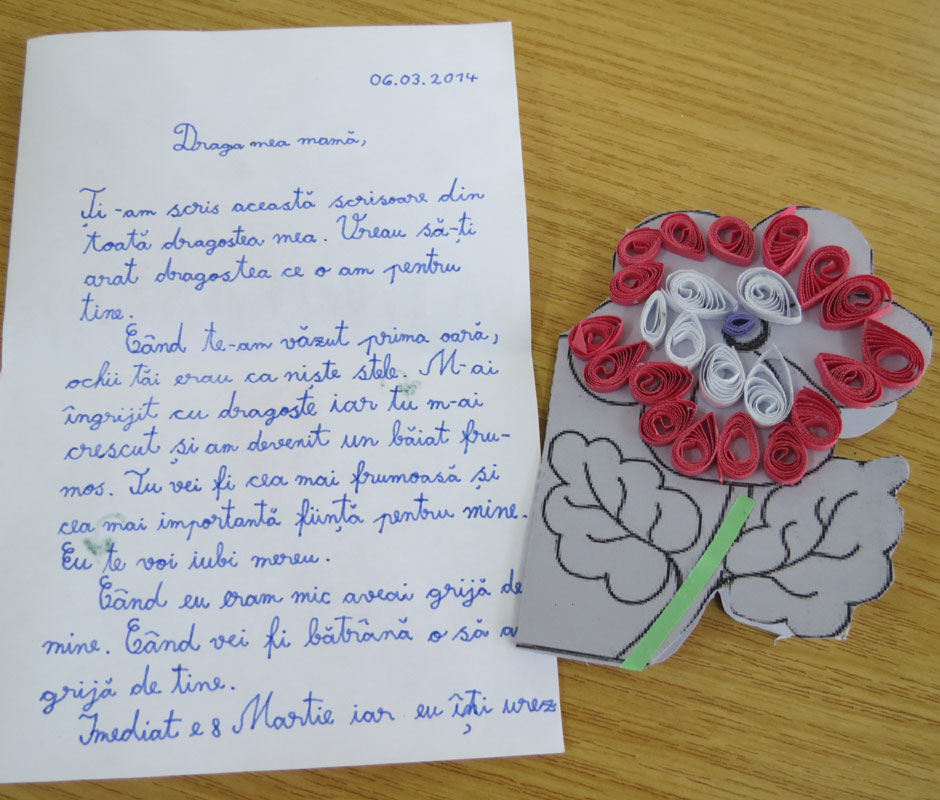 06.03.2014
Draga mea mamă,
Ți-am scris această scrisoare din
toată dragostea mea. Vreau să-ți
arat dragostea ce o am pentru
tine.
Când te-am văzut prima oară,
ochii tăi erau ca niște stele. M-ai
îngrijit cu dragoste iar tu m-ai
crescut și am devenit un băiat fru-
mos. Tu vei fi cea mai frumoasă și
cea mai importantă ființă pentru mine.
Eu te voi iubi mereu.
Când eu eram mic aveai grijă de
mine. Când vei fi bătrână o să a
grijă de tine.
Imediat e 8 Martie iar eu îți urez